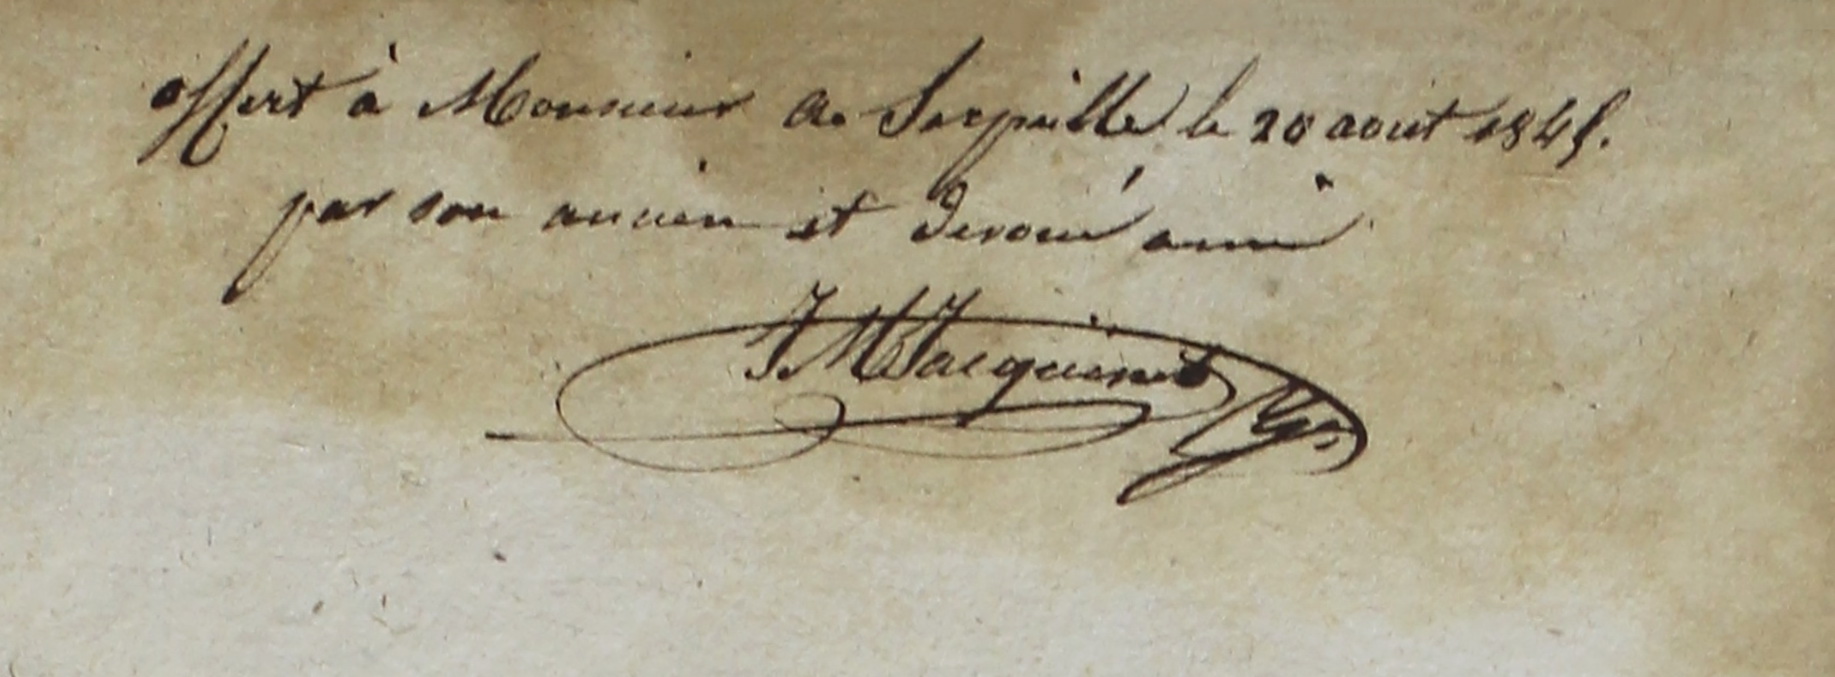 offert à Monsieur de Serpille le 20 aout 1845.
par son ancien et devoué ami
JMJacquinot